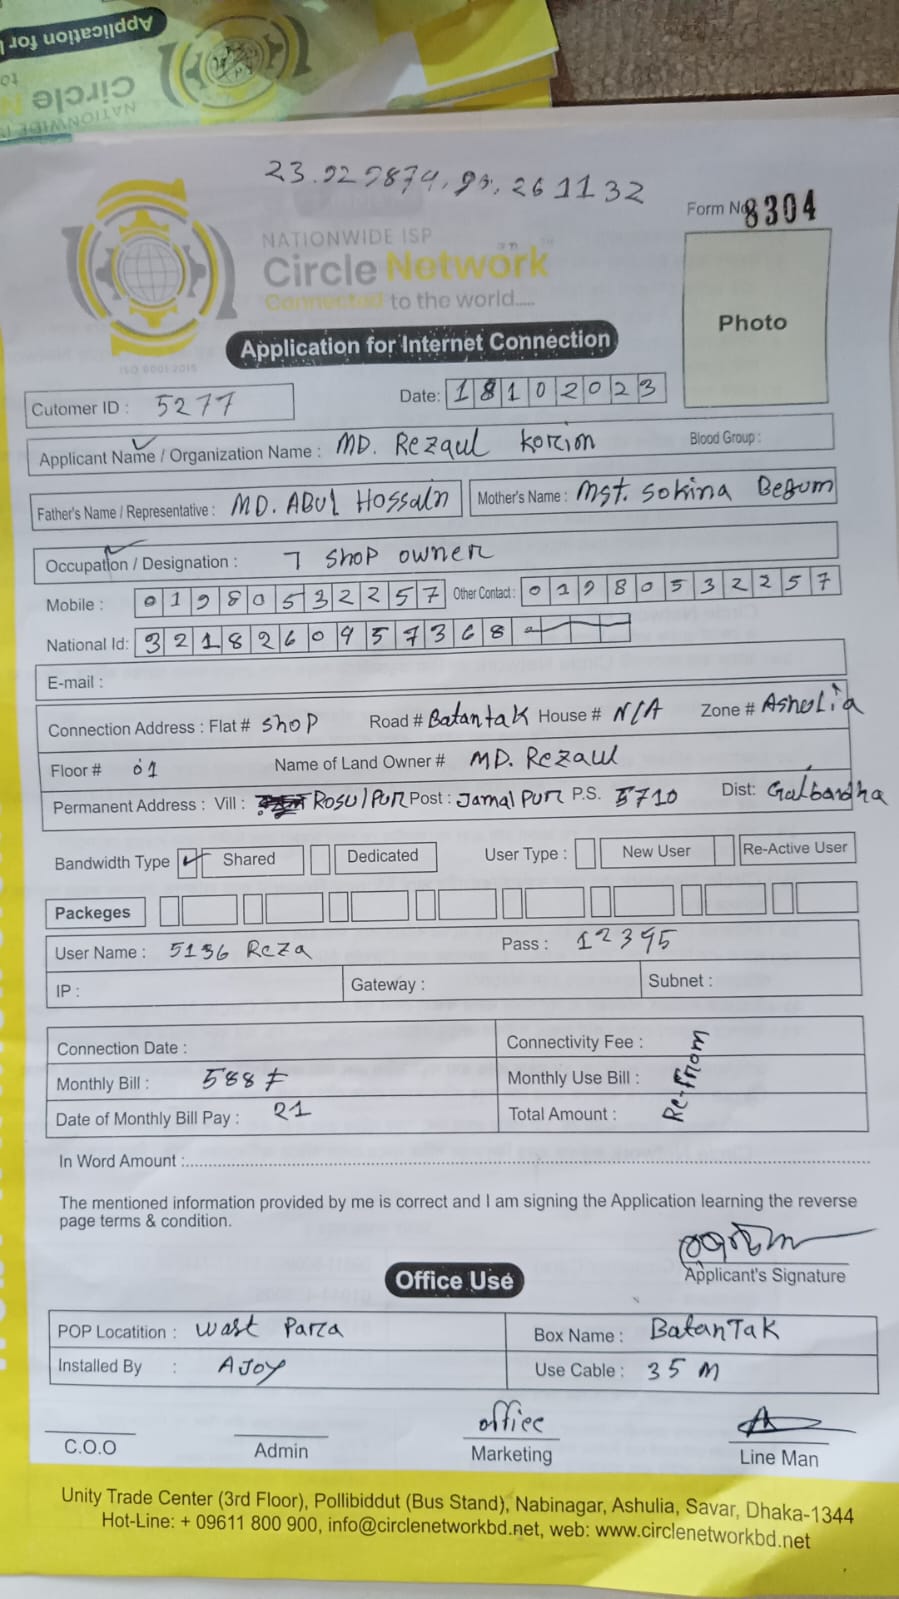 Application for
Circle
NATIONWIDE
23.929874, 90.261132
Form No 8304
NATIONWIDE ISP
Circle Network
Connected to the world.....
ISO 9001:2015
Photo
Application for Internet Connection
Cutomer ID : 5277
Date: 18102023
Applicant Name / Organization Name : MD. Rezaul Korim Blood Group :
Father's Name / Representative : MD. ABUL Hossain Mother's Name : Mst. Sokina Begum
Occupation / Designation : T Shop owner
Mobile : 01980532257 Other Contact : 01980532257
National Id: 3218260957368
E-mail :
Connection Address : Flat # Shop Road # Batantak House # N/A Zone # Ashulia
Floor # 01 Name of Land Owner # MD. Rezaul
Permanent Address : Vill : Rosulpur Post : Jamalpur P.S. 5710 Dist: Gaibandha
Bandwidth Type Shared Dedicated User Type : New User Re-Active User
Packeges
User Name : 5136 Reza Pass : 12345
IP : Gateway : Subnet :
Connection Date : Connectivity Fee :
Monthly Bill : 588 Monthly Use Bill :
Date of Monthly Bill Pay : 21 Total Amount :
Re-From
In Word Amount :
The mentioned information provided by me is correct and I am signing the Application learning the reverse
page terms & condition.
Applicant's Signature
Office Use
POP Locatition : West Para Box Name : BatanTak
Installed By : AJoy Use Cable : 35 M
office
C.O.O Admin Marketing Line Man
Unity Trade Center (3rd Floor), Pollibiddut (Bus Stand), Nabinagar, Ashulia, Savar, Dhaka-1344
Hot-Line: + 09611 800 900, info@circlenetworkbd.net, web: www.circlenetworkbd.net